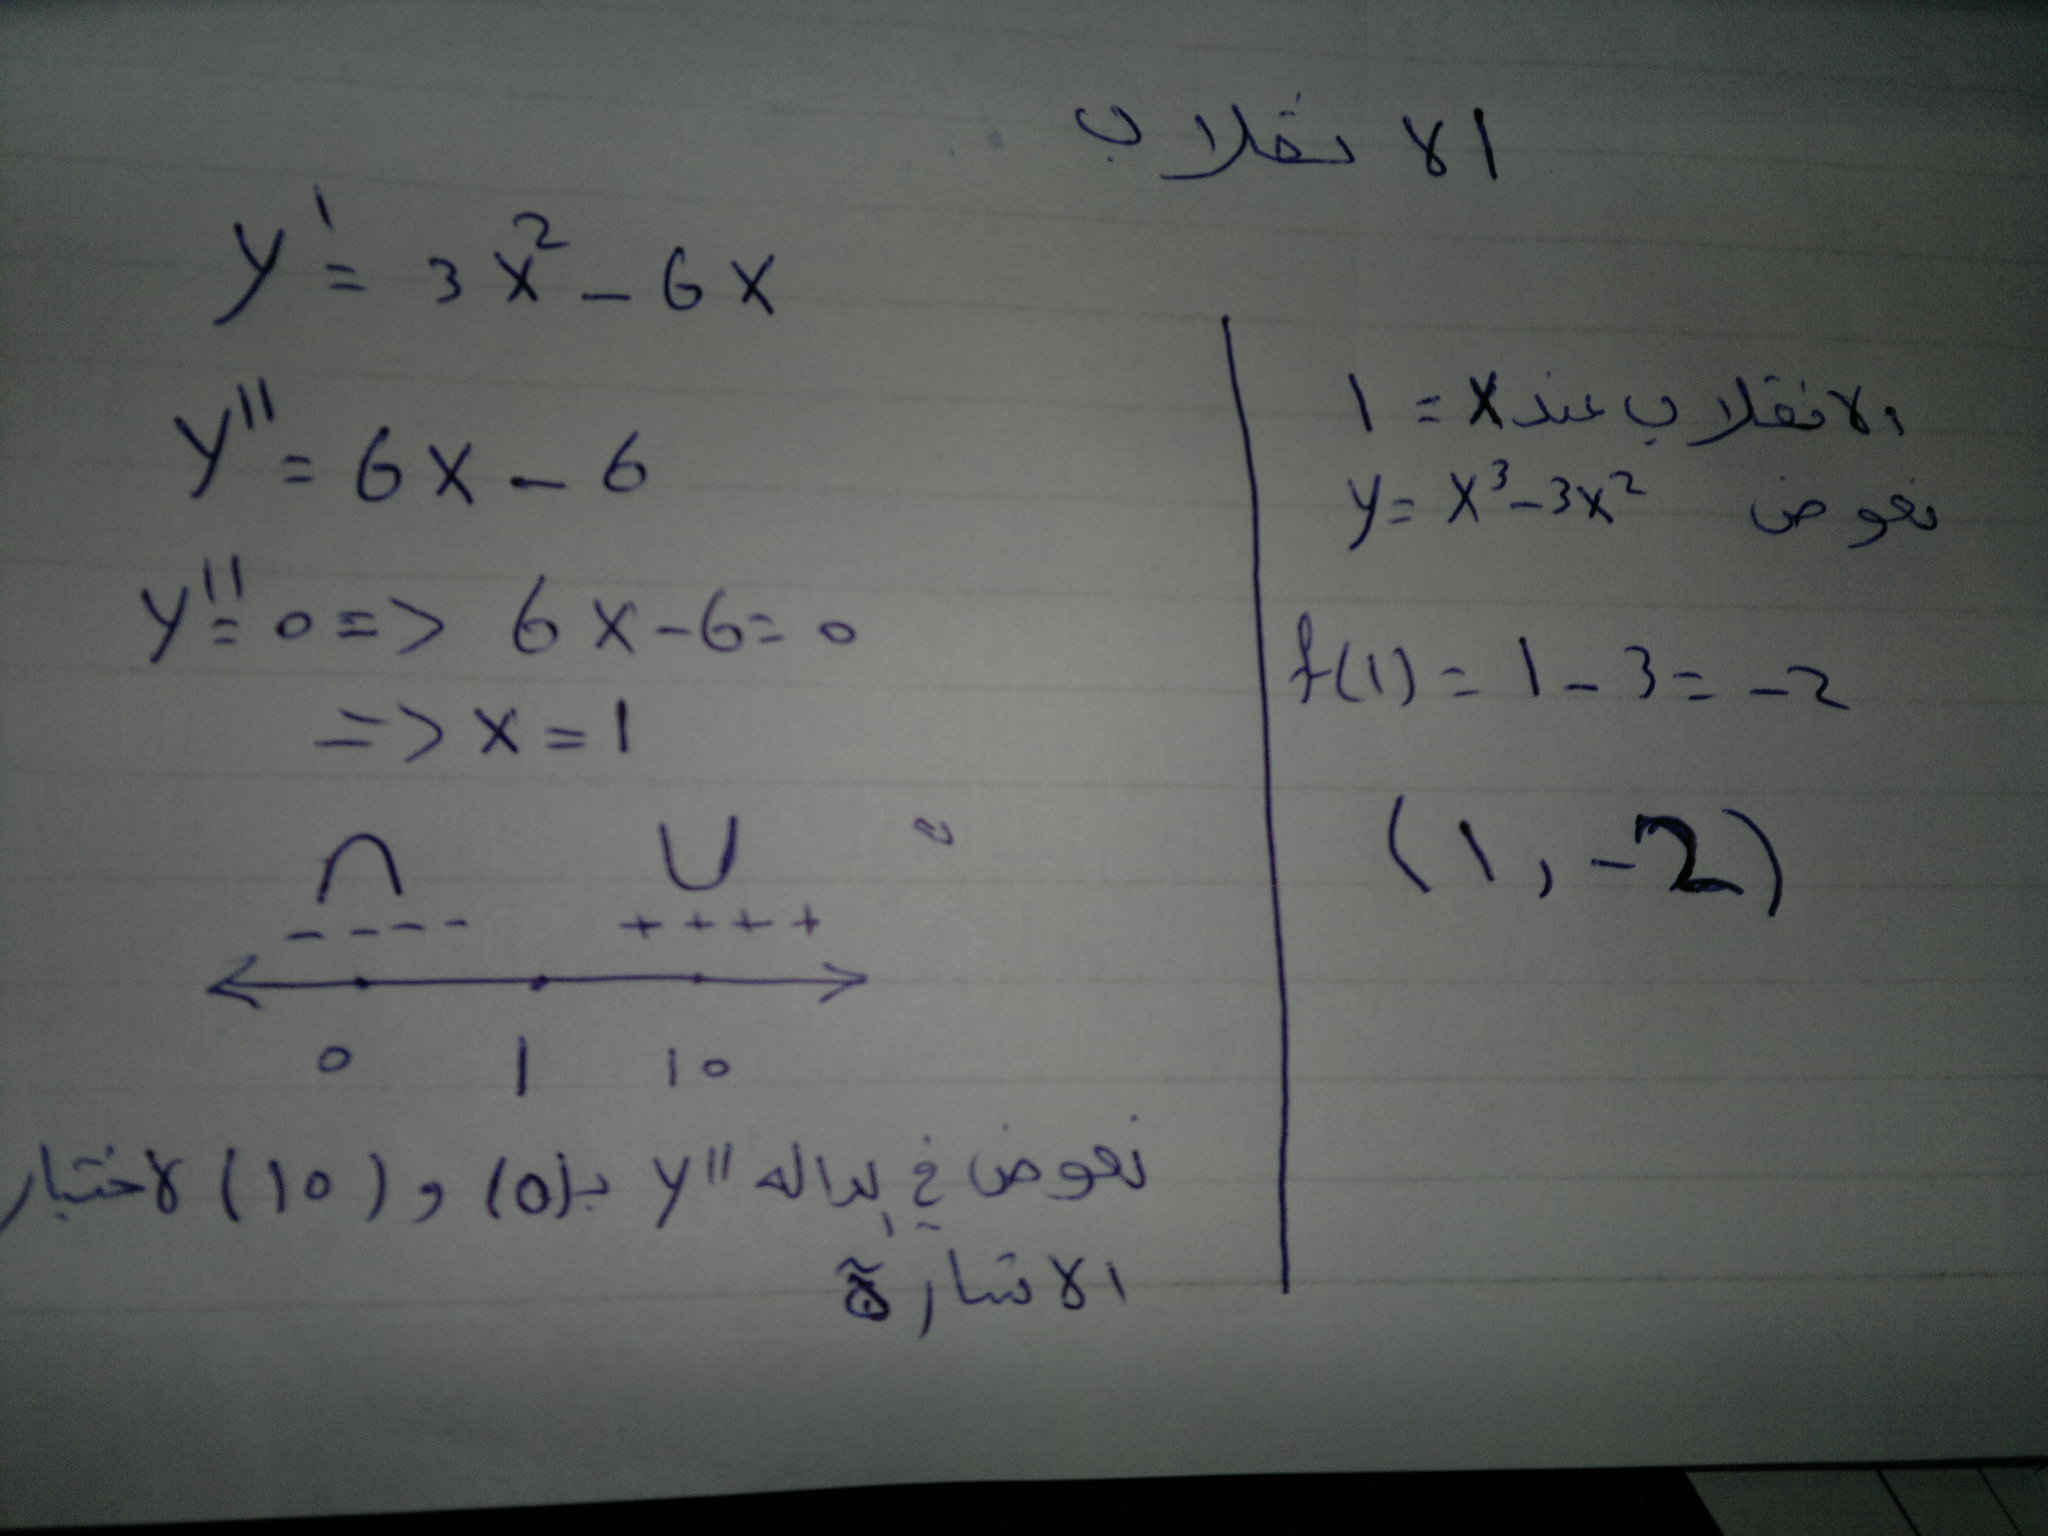 الانقلاب
y' = 3x² - 6x
y'' = 6x - 6
y'' = 0 => 6x - 6 = 0
=> x = 1
∩ U
- - - - + + + +
0 1 10
نعوض في الداله y'' بـ (0) و (10) لاختبار
الاشارة
الانقلاب عند x = 1
نعوض y = x³ - 3x²
f(1) = 1 - 3 = -2
(1, -2)